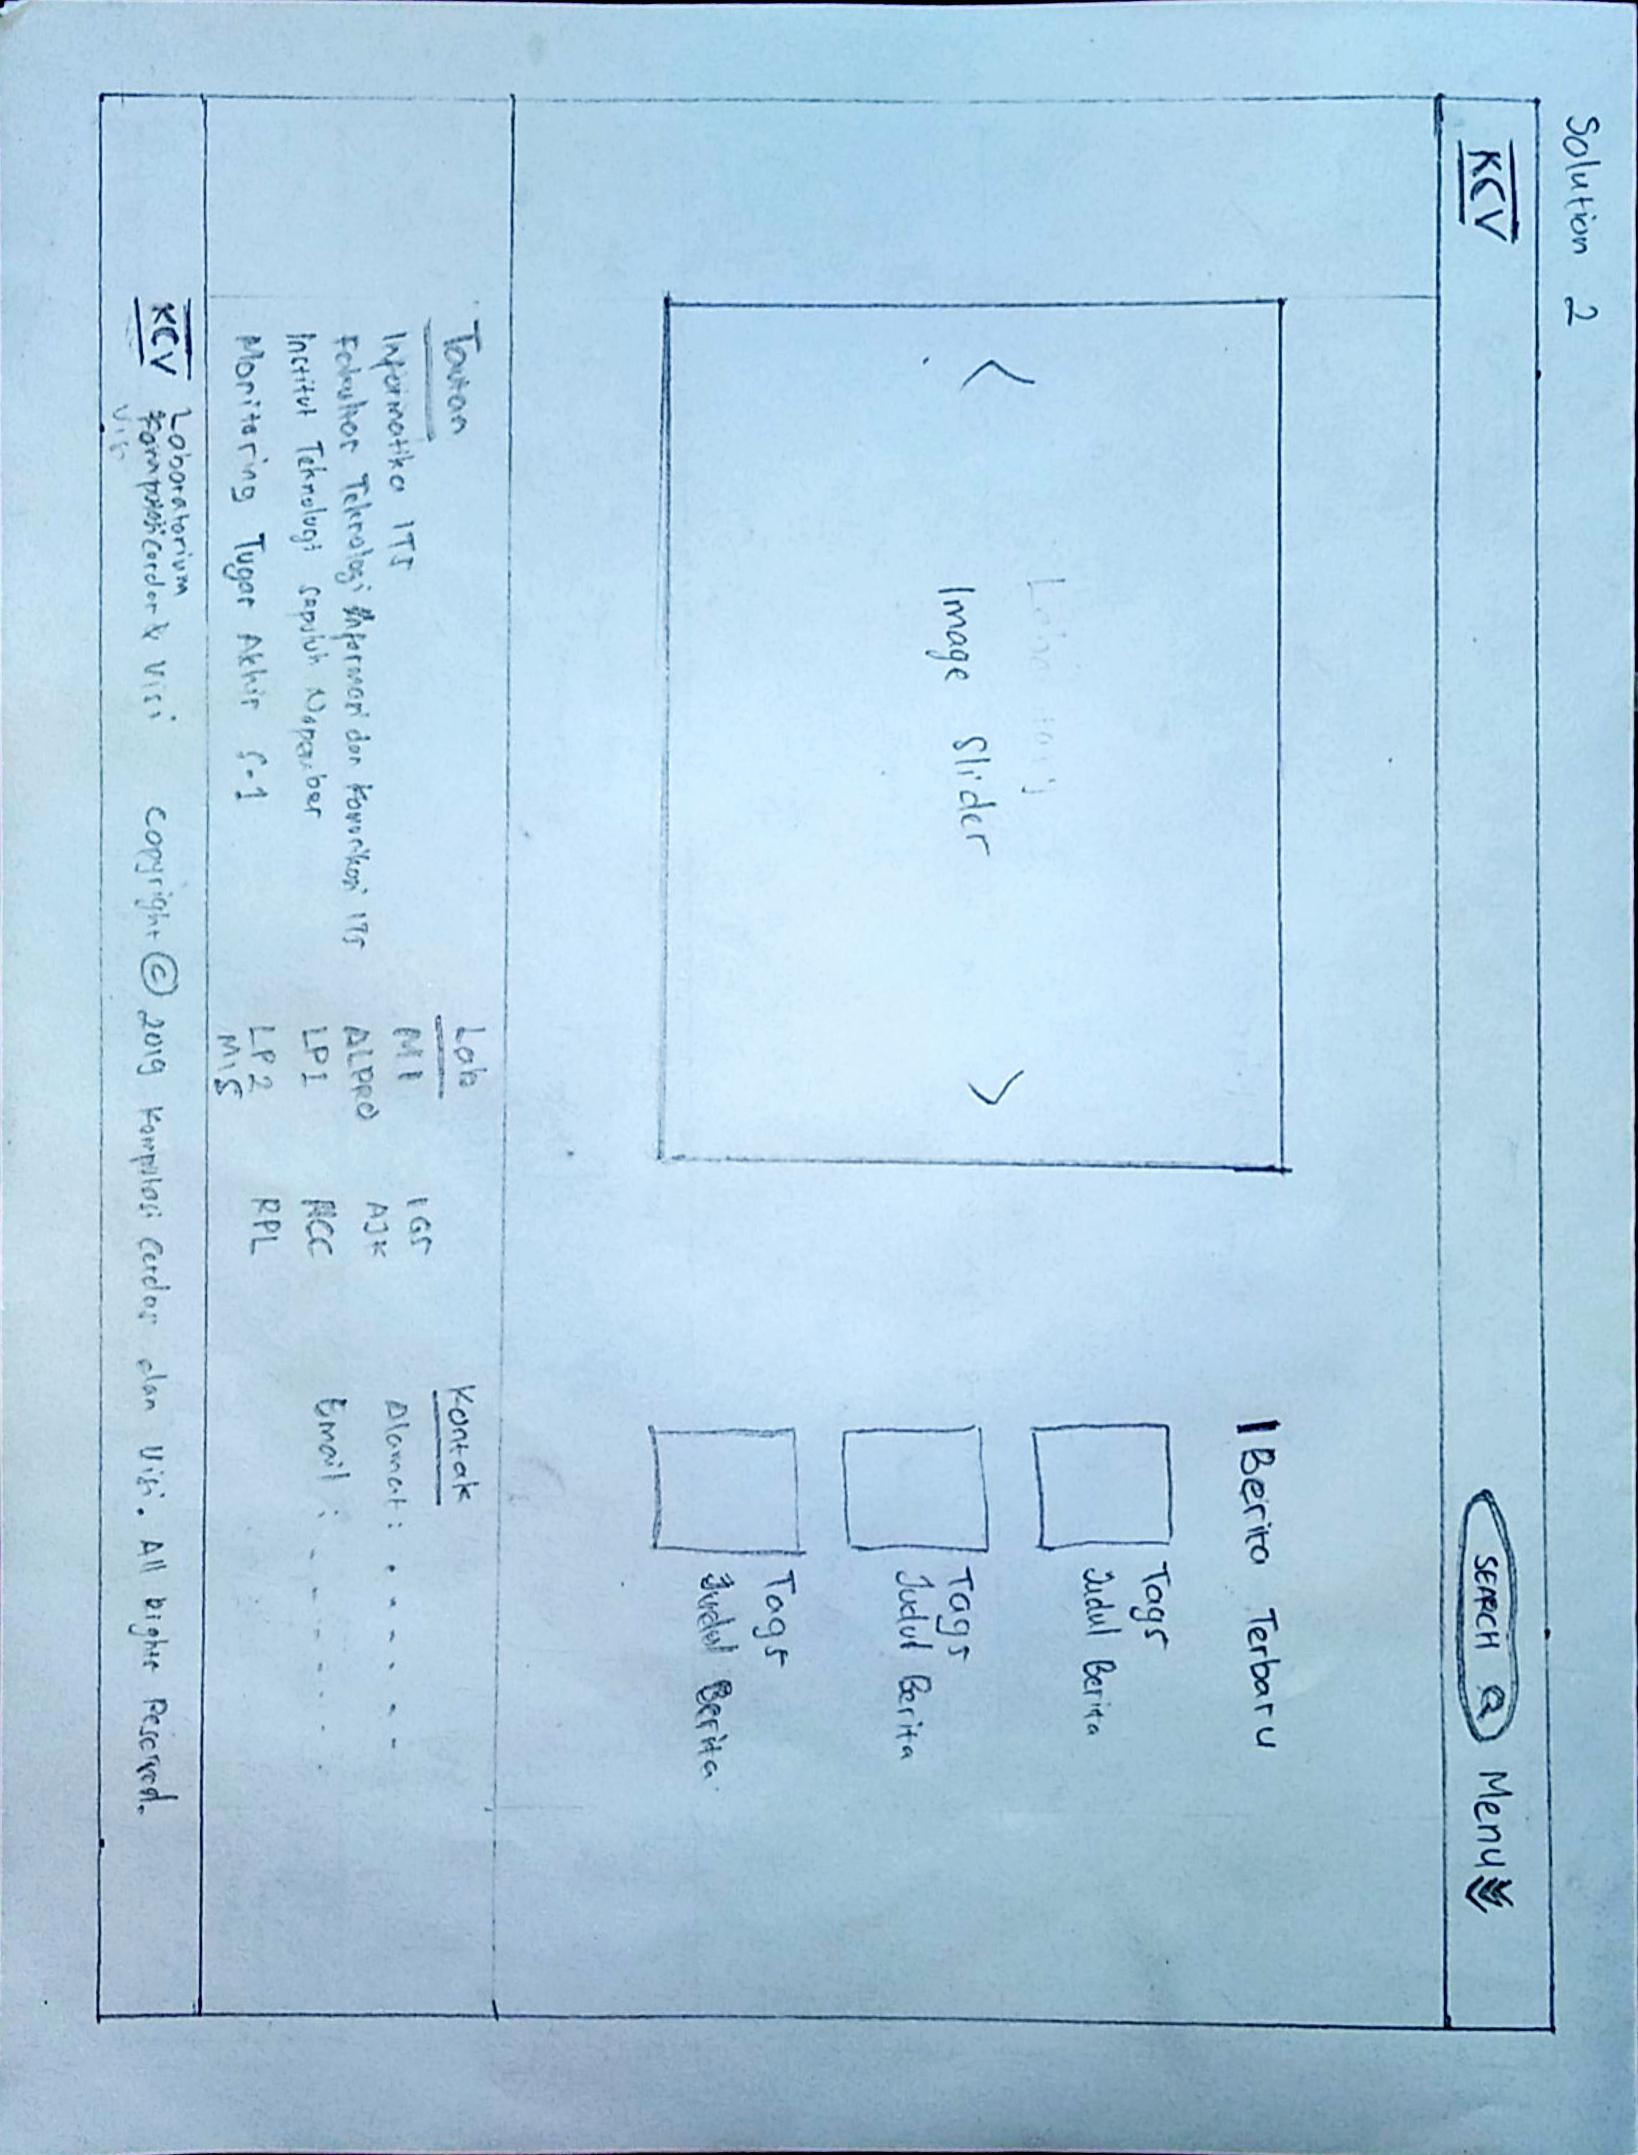 Solution 2
KCV
SEARCH
Menu
Berita Terbaru
Tags
Judul Berita
Tags
Judul Berita
Tags
Judul Berita
<
Image Slider
>
Tautan
Informatika ITS
Fakultas Teknologi Informasi dan Komunikasi ITS
Institut Teknologi Sepuluh Nopember
Monitoring Tugas Akhir S-1
Lab
MI
ALPRO
LP1
LP2
MIS
IGS
AJK
NCC
RPL
Kontak
Alamat : . - - . - -
Email : . - . - . . .
KCV
Laboratorium
Komputasi Cerdas & Visi
Vis
Copyright © 2019 Komputasi Cerdas dan Visi. All Rights Reserved.